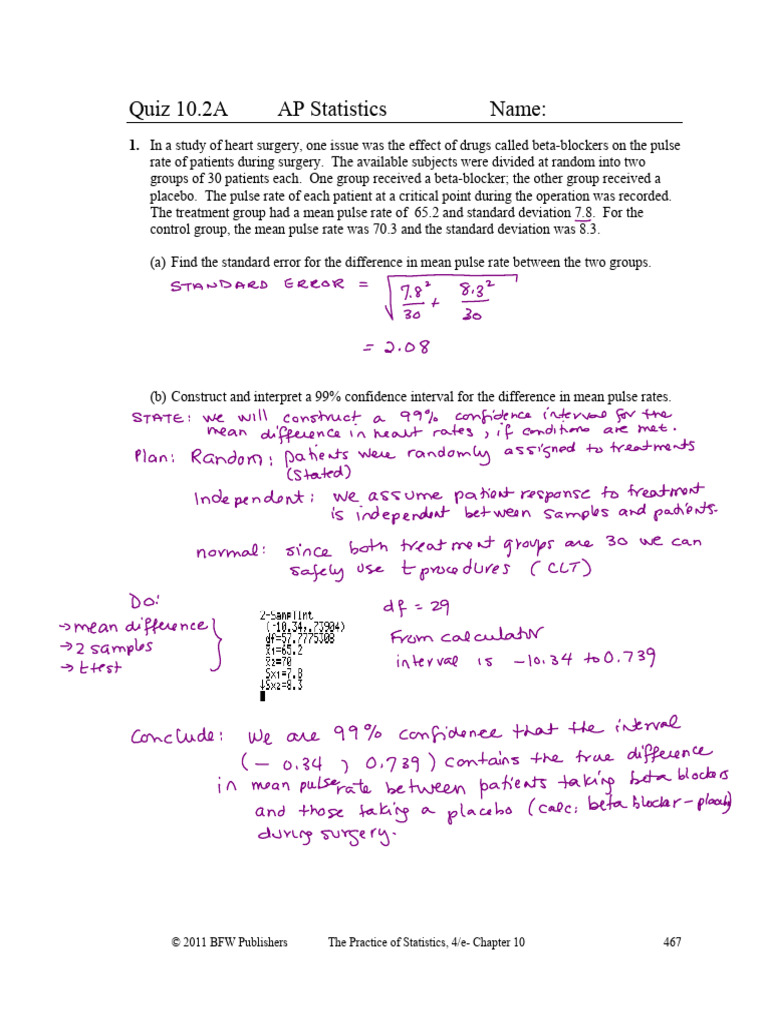 Quiz 10.2A AP Statistics Name:
1. In a study of heart surgery, one issue was the effect of drugs called beta-blockers on the pulse
rate of patients during surgery. The available subjects were divided at random into two
groups of 30 patients each. One group received a beta-blocker; the other group received a
placebo. The pulse rate of each patient at a critical point during the operation was recorded.
The treatment group had a mean pulse rate of 65.2 and standard deviation 7.8. For the
control group, the mean pulse rate was 70.3 and the standard deviation was 8.3.
(a) Find the standard error for the difference in mean pulse rate between the two groups.
STANDARD ERROR = √(7.8²/30 + 8.3²/30)
= 2.08
(b) Construct and interpret a 99% confidence interval for the difference in mean pulse rates.
STATE: we will construct a 99% confidence interval for the
mean difference in heart rates, if conditions are met.
Plan: Random: patients were randomly assigned to treatments
(stated)
Independent: we assume patient response to treatment
is independent between samples and patients.
normal: since both treatment groups are 30 we can
safely use t procedures (CLT)
Do:
→ mean difference
→ 2 samples
→ t test
2-SampTInt
(-10.34,.73904)
df=57.7775308
x̄1=65.2
x̄2=70
Sx1=7.8
↓Sx2=8.3
df = 29
From calculator
interval is -10.34 to 0.739
Conclude: We are 99% confidence that the interval
(- 0.34, 0.739) contains the true difference
in mean pulse rate between patients taking beta blockers
and those taking a placebo (calc: beta blocker - placebo)
during surgery.
© 2011 BFW Publishers The Practice of Statistics, 4/e- Chapter 10 467